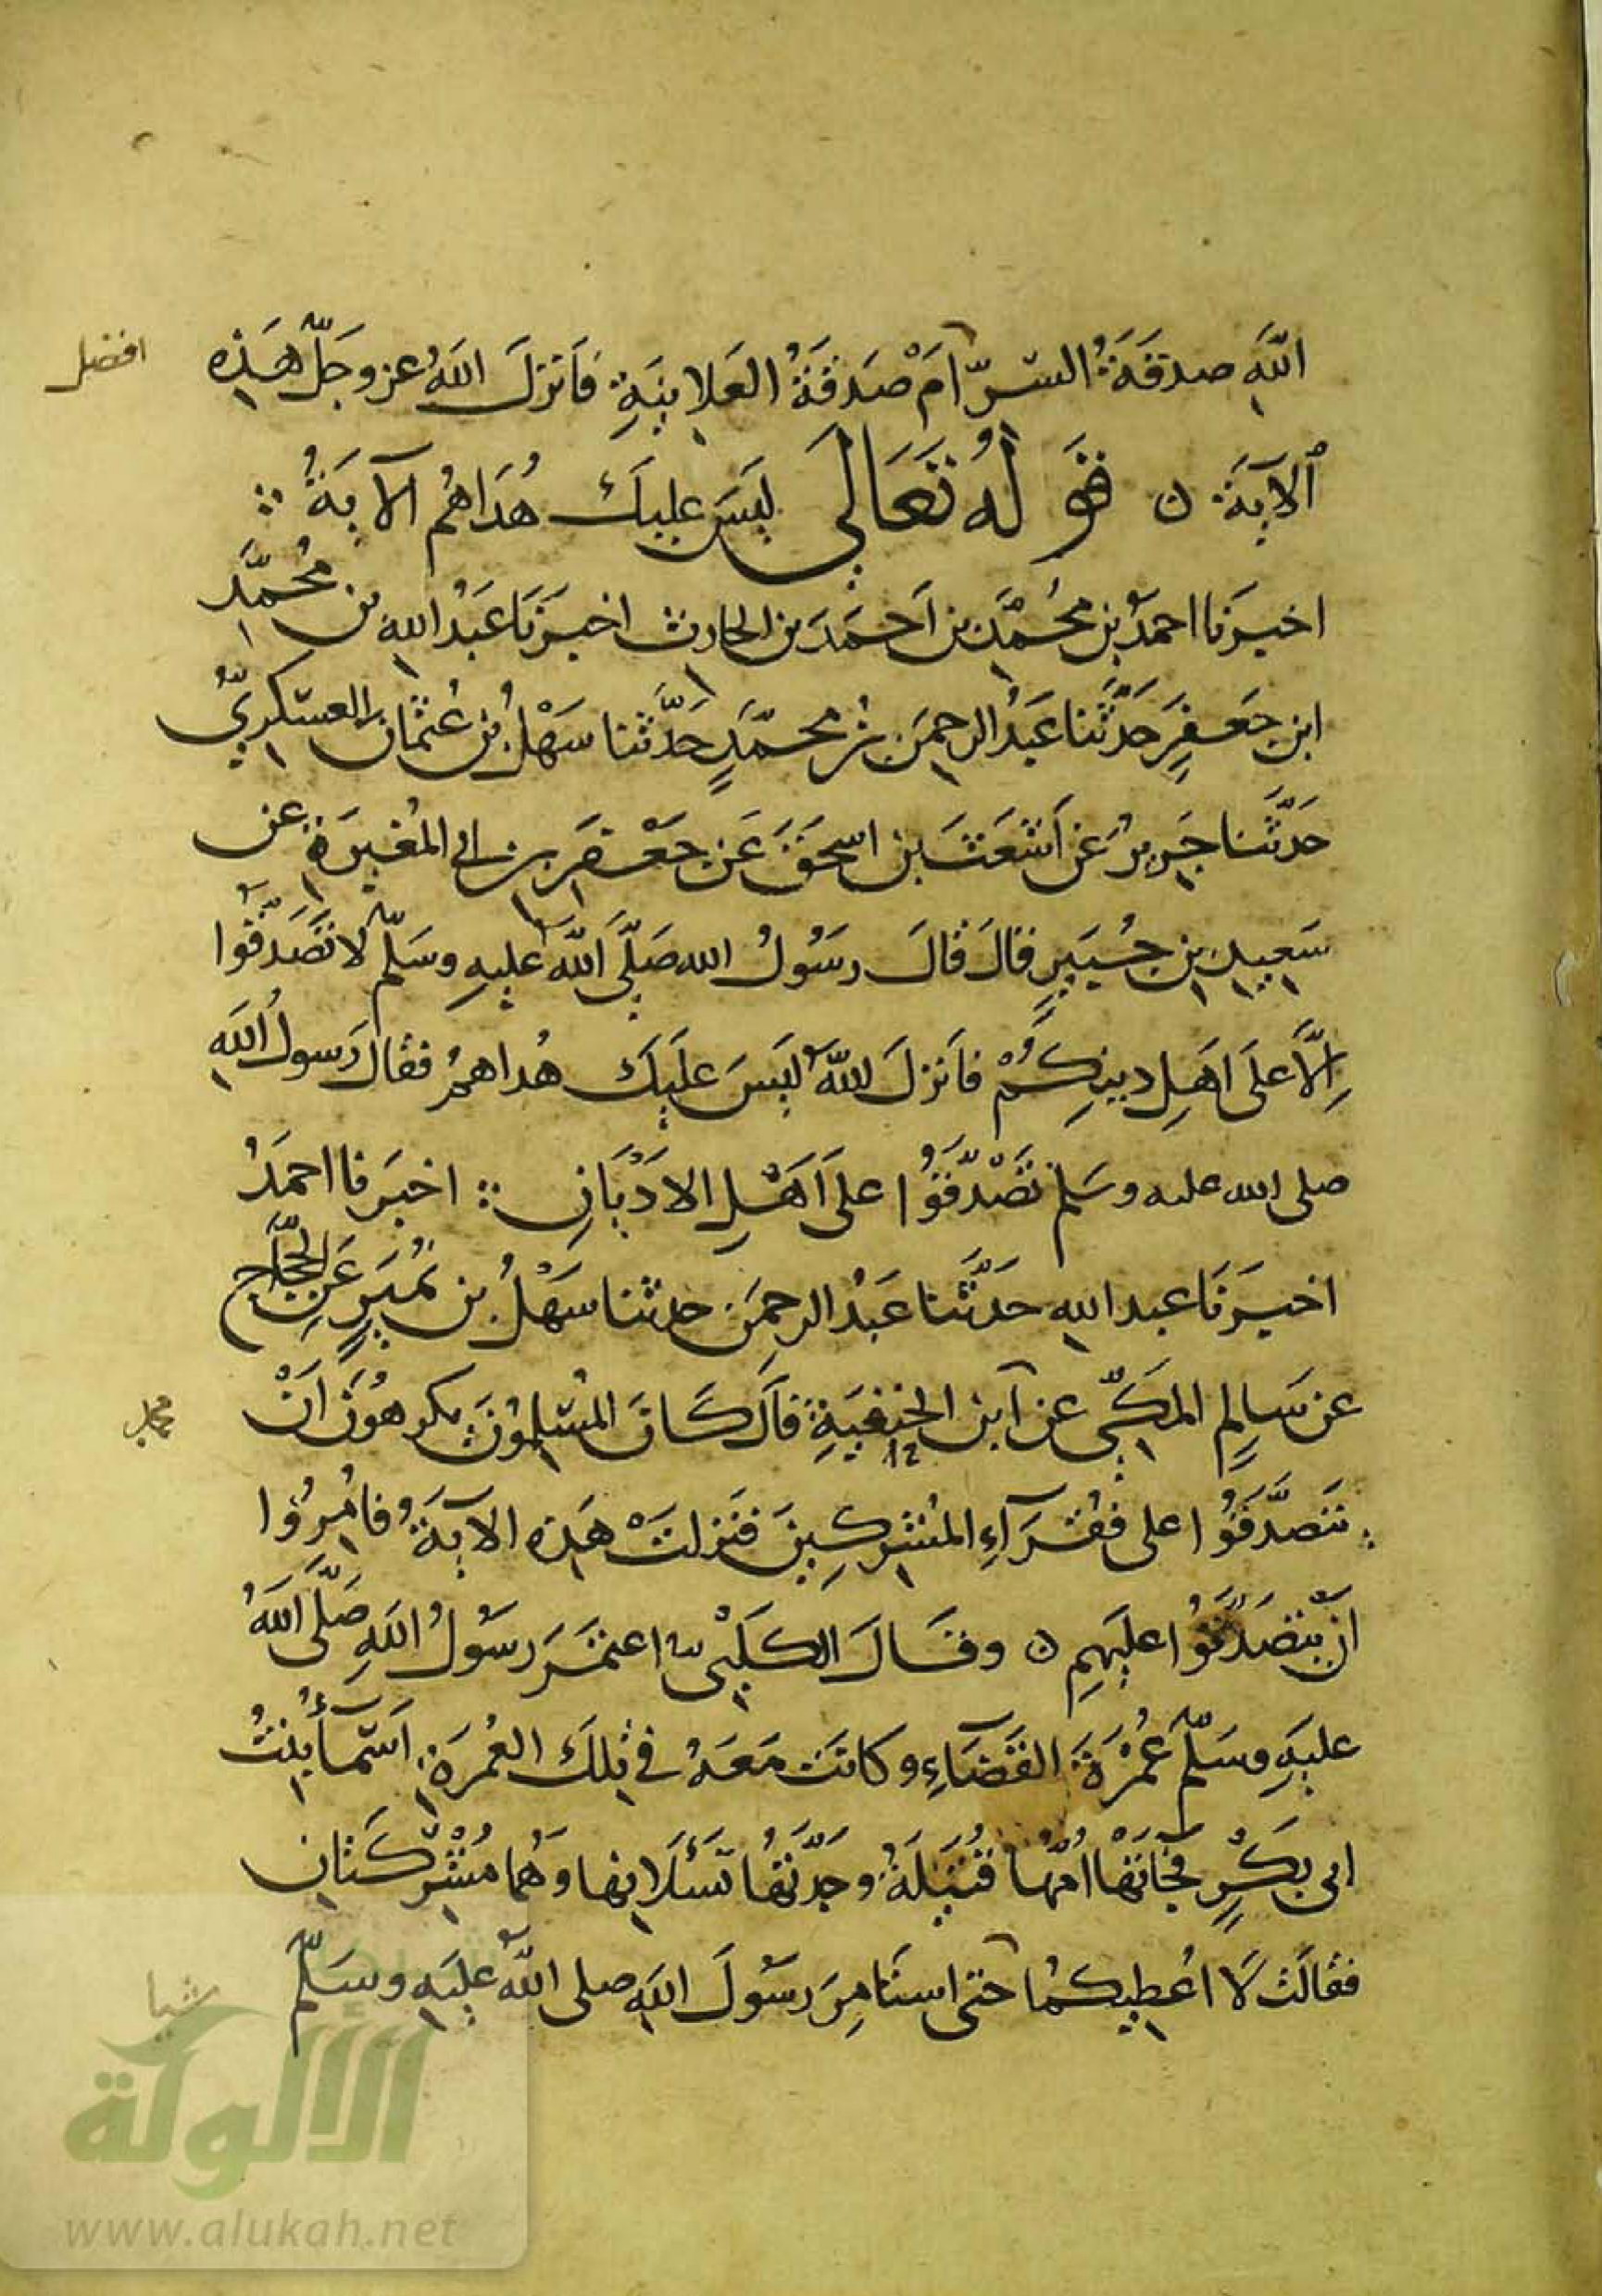 اللَّهِ صدقَةُ السِّرِّ أَمْ صَدَقَةُ العَلانِيَةِ فَأَنزَلَ اللَّهُ عز وجَلَّ هَذِهِ
افضل
الآيَةَ ن قَولُهُ تَعَالَى لَيسَ عليكَ هُدَاهُم الآيَةُ
اخبَرَنا احمدُ بن محُمَّدِ بن أَحمَدَ بن الحارِث اخبَرَنَا عَبدُ اللهِ بن مُحمَّدِ
ابنِ جَعفَرٍ حَدَّثَنا عَبدُ الرحمَن بنُ محمَّدٍ حَدَّثنا سَهْلُ بنُ عُثمَانَ العسكرِيُّ
حَدَّثَنا جَرِيرُ عَن أَشعَثَ بنِ اسحَقَ عَن جَعْفَرِ بنِ ابي المغِيرَةِ عن
سَعِيدِ بنِ جُبَيرٍ قالَ قالَ رسَوُلُ الله صَلَّى اللَّهُ عليهِ وسَلَّم لا تَصَّدَّقُوا
إِلَّا عَلَى اهَلِ دينِكُمْ فأنزلَ اللهُ لَيسَ علَيكَ هُداهُم فقالَ رَسولُ اللَّهِ
صلى الله عليه وسَلم تَصَّدَّقُوا على أَهْلِ الادْيَانِ اخبَرنا احمَدُ
اخبَرَنَا عبد اللهِ حَدَّثَنا عَبدُ الرحمَن حدثنا سَهْلُ بن نُمَيرٍ عَنِ الحجَّاجِ
عن سَالِمِ المكِّيِّ عن ابن الحنفِيَةِ قالَ كَانَ المسُلِموُنَ يكرهُونَ أَنْ
محمد
يتَصَدَّقُوا على فقَرآءِ المشُركِينَ فنَزلَتْ هَذِه الآيَةُ فامِرُوا
ان يتَصَدَّقُوا عليَهِم ن وقَالَ الكَلبْيّ اعتمَرَ رسَوُلُ اللَّهِ صَلَّى اللَّهُ
عليَهِ وسَلَّم عُمْرَةَ القَضَاءِ وكانَت مَعَهُ في تِلكَ العُمرَةِ اسَمآءُ بنتُ
ابى بَكْرٍ فجَآتَهَا امُّهَا قُتَيلَةُ وجَدَّتُهَا تَسَئَلانِها وَهُمَا مُشْرِكَتَانِ
فقالَت لَا اعُطِيكمُا حَتى استَامِرَ رسَوُلَ اللَّهِ صلى اللَّهُ عليَهِ وسَلَّم
شيا
الألوكة
www.alukah.net